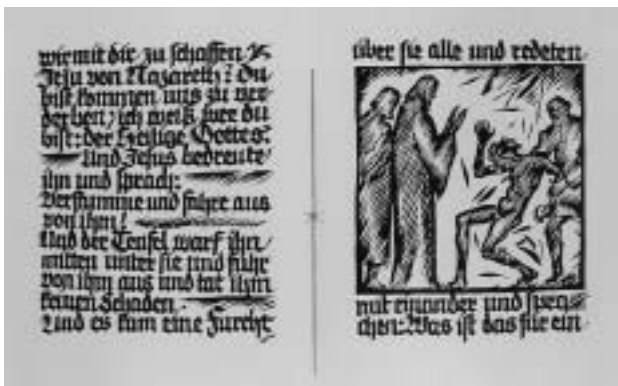 wir mit dir zu schaffen
Jesu von Nazareth? Du
bist kommen uns zu ver
derben; ich weiß wer du
bist: der Heilige Gottes!
Und Jesus bedreute
ihn und sprach:
Verstumme und fahre aus
von ihm!
Und der Teufel warf ihn
mitten unter sie und fuhr
von ihm aus und tat ihm
keinen Schaden.
Und es kam eine Furcht
über sie alle und redeten
mit einander und spra
chen: Was ist das für ein